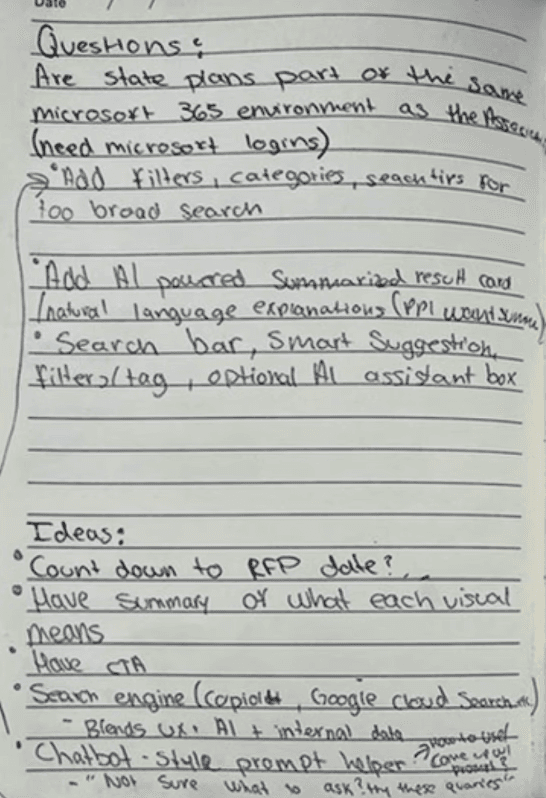 Date / /
Questions:
Are state plans part of the same
microsoft 365 environment as the Associ
(need microsoft logins)
→ • Add filters, categories, seach tips for
too broad search
• Add AI powered summarized result card
/natural language explanations (PPI want summ)
• Search bar, Smart Suggestion,
filters/tag, optional AI assistant box
Ideas:
• Count down to RFP date?
• Have summary of what each visual
means
• Have CTA
• Search engine (Copilot, Google Cloud Search, etc)
- Blends UX, AI + internal data
• Chatbot - style prompt helper → how to use?
Come up w/
prompt?
- "Not sure what to ask? try these quaries"